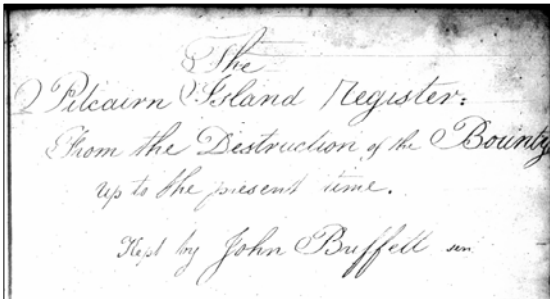 The
Pitcairn Island Register:
From the Destruction of the Bounty
up to the present time.
Kept by John Buffett sen